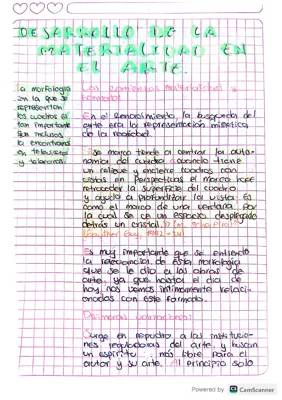 DESARROLLO DE LA
MATERIALIDAD EN
EL ARTE.
La morfología
en la que se
representan
los cuadros es
tan importante
que incluso
la encontramos
en televisores
y teléfonos
Los comienzos materialidad y
formato:
En el Renacimiento, la búsqueda del
arte era la representación mimética
de la realidad.
Se marca tiende a centrar la auto-
nomía del cuadro cuando tiene
un relieve y encierre cuadros con
vistas en Perspectivas el marco hace
retroceder la superficie del cuadro
y ayuda a profundizar la vista. Es
como el marco de una ventana por
la cual se ve un espacio desplegado
detrás un cristal.
Es muy importante que se entienda
la relevancia de esta morfología
que se le dio a las obras de
arte, ya que hasta el día de
hoy nos vemos íntimamente relaci-
onadas con este formato.
Primeras
Surge en repudio a las institucio-
nes reguladoras del arte, y buscan
un espíritu más libre para el
autor y su arte. Al principio solo
Powered by CS CamScanner